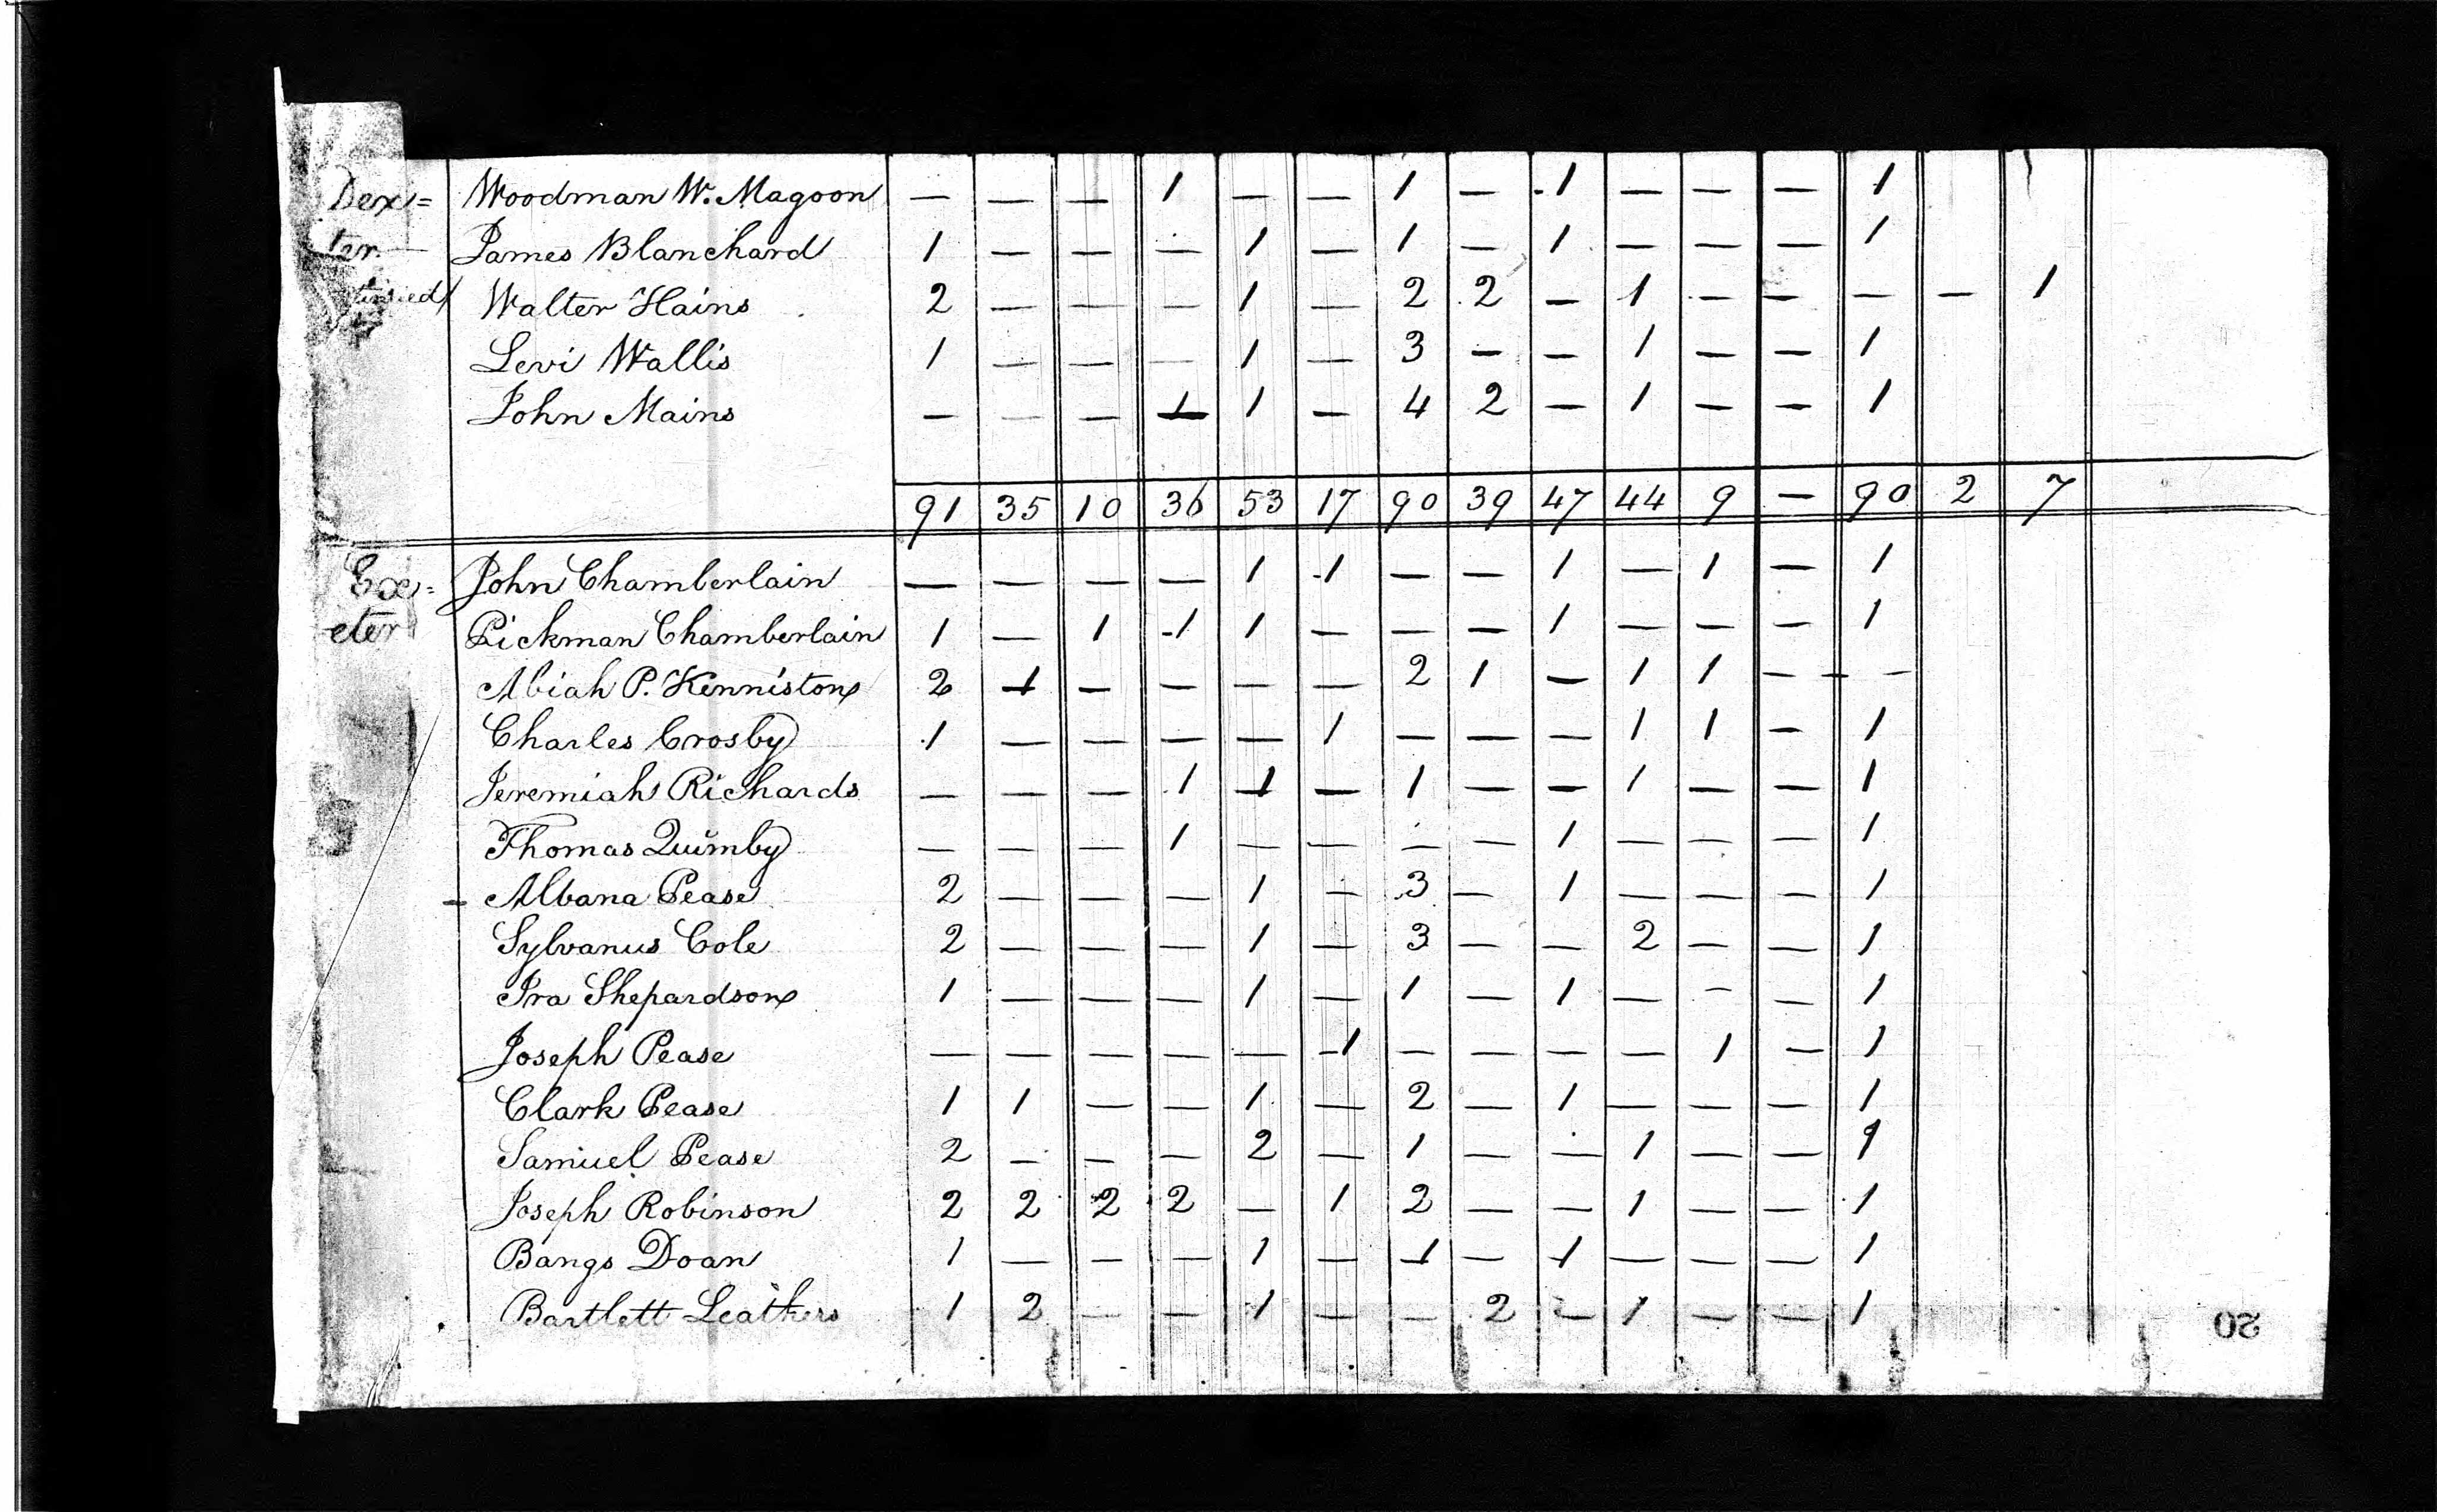 Dex= Woodman W. Magoon — — — 1 — — 1 — 1 — — — 1
ter James Blanchard 1 — — — 1 — 1 — 1 — — — 1
Walter Hains 2 — — — 1 — 2 2 — 1 — — — — 1
Levi Wallis 1 — — — 1 — 3 — — 1 — — 1
John Mains — — — 1 1 — 4 2 — 1 — — 1
91 35 10 36 53 17 90 39 47 44 9 — 90 2 7
Ex= John Chamberlain — — — — 1 1 — — 1 — 1 — 1
eter Rickman Chamberlain 1 — 1 1 1 — — — 1 — — — 1
Abiah P. Kenniston 2 1 — — — — 2 1 — 1 1 — — —
Charles Crosby 1 — — — — 1 — — — 1 1 — 1
Jeremiah Richards — — — 1 1 — 1 — — 1 — — 1
Thomas Quimby — — — 1 — — — — 1 — — — 1
Albana Pease 2 — — — 1 — 3 — 1 — — — 1
Sylvanus Cole 2 — — — 1 — 3 — — 2 — — 1
Ira Shepardson 1 — — — 1 — 1 — 1 — — — 1
Joseph Pease — — — — — 1 — — — — 1 — 1
Clark Pease 1 1 — — 1 — 2 — 1 — — — 1
Samuel Pease 2 — — — 2 — 1 — — 1 — — 1
Joseph Robinson 2 2 2 2 — 1 2 — — 1 — — 1
Bangs Doan 1 — — — 1 — 1 — 1 — — — 1
Bartlett Leathers 1 2 — — 1 — — 2 — 1 — — 1
20